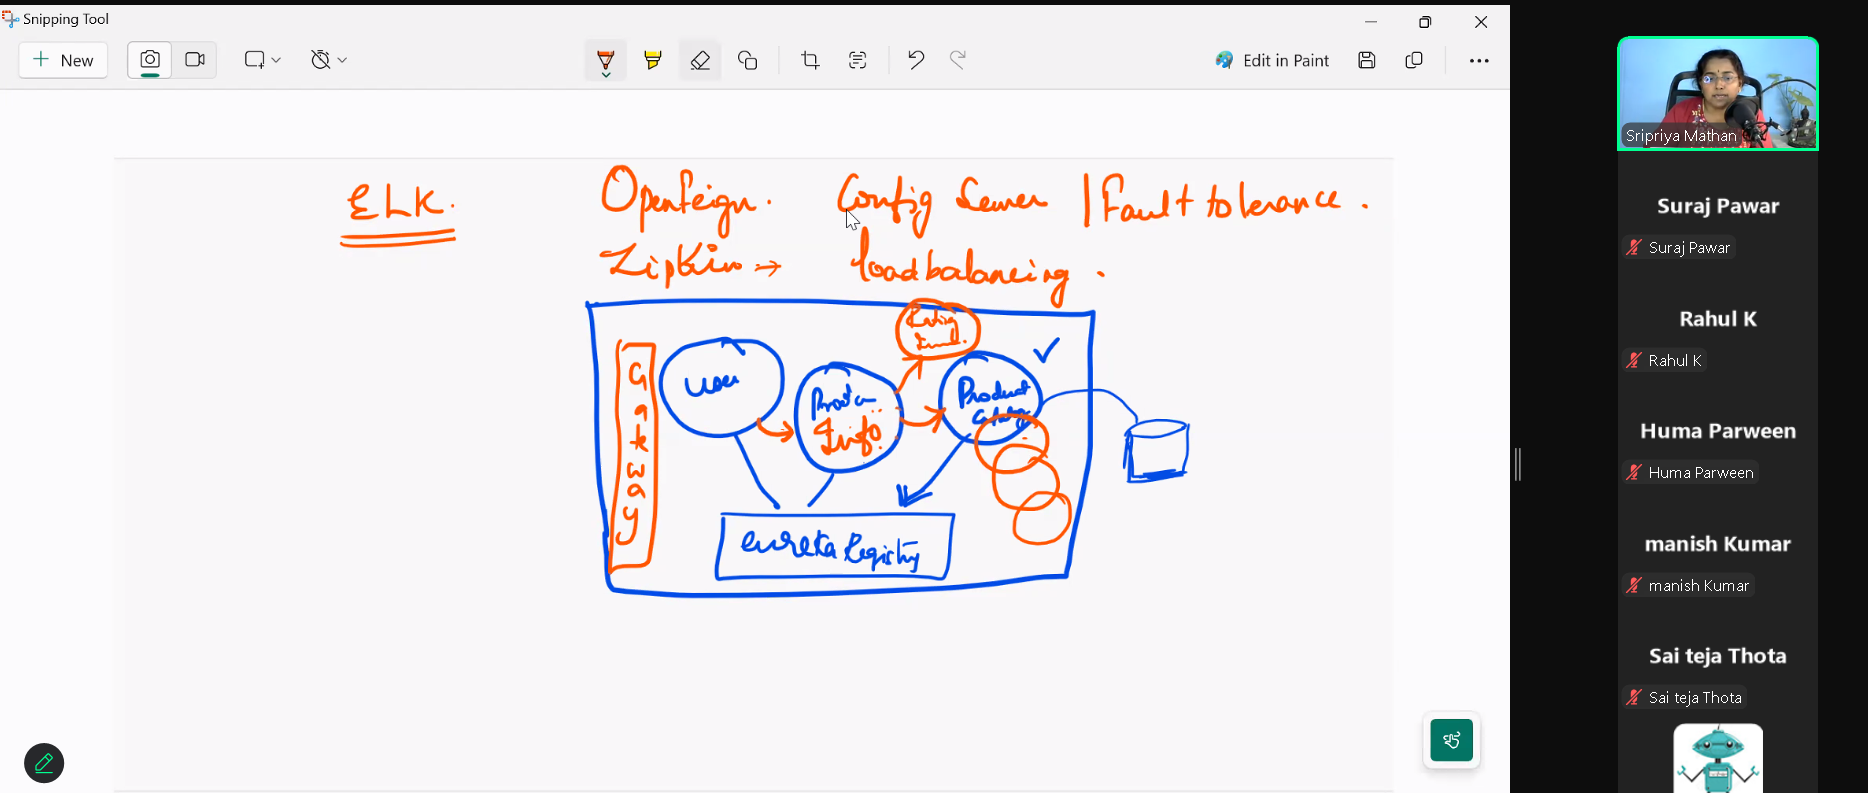 Snipping Tool
New
Edit in Paint
ELK.
OpenFeign. Config Server | Fault tolerance.
Zipkin → loadbalancing.
Rating
User
Product
Info
Product
Catalog
Gateway
eureka Registry
Sripriya Mathan
Suraj Pawar
Suraj Pawar
Rahul K
Rahul K
Huma Parween
Huma Parween
manish Kumar
manish Kumar
Sai teja Thota
Sai teja Thota